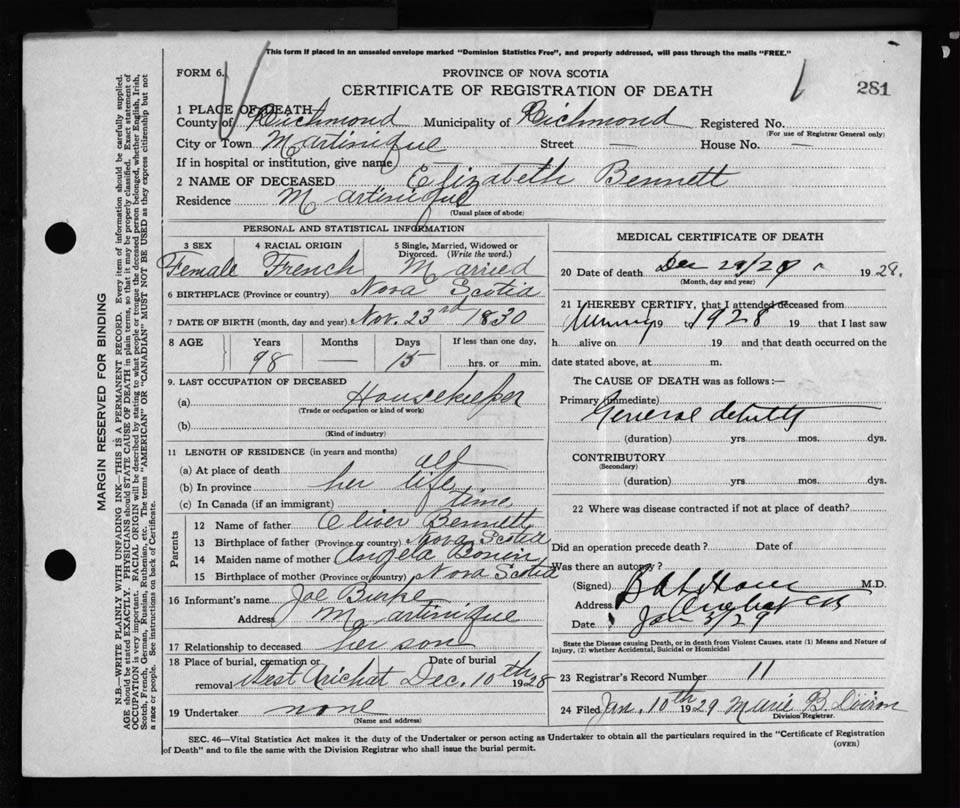 This form if placed in an unsealed envelope marked "Dominion Statistics Free", and properly addressed, will pass through the mails "FREE."
FORM 6.
PROVINCE OF NOVA SCOTIA
CERTIFICATE OF REGISTRATION OF DEATH
281
1 PLACE OF DEATH
County of Richmond Municipality of Richmond Registered No.
(For use of Registrar General only)
City or Town Martinique Street — House No. —
If in hospital or institution, give name
2 NAME OF DECEASED Elizabeth Bennett
Residence Martinique
(Usual place of abode)
PERSONAL AND STATISTICAL INFORMATION
3 SEX 4 RACIAL ORIGIN 5 Single, Married, Widowed or Divorced. (Write the word.)
Female French Married
6 BIRTHPLACE (Province or country) Nova Scotia
7 DATE OF BIRTH (month, day and year) Nov. 23rd 1830
8 AGE Years Months Days If less than one day,
98 — 15 hrs. or min.
9. LAST OCCUPATION OF DECEASED
(a) Housekeeper
(Trade or occupation or kind of work)
(b)
(Kind of industry)
11 LENGTH OF RESIDENCE (in years and months)
(a) At place of death all
(b) In province her life
(c) In Canada (if an immigrant) time
Parents
12 Name of father Oliver Bennett
13 Birthplace of father (Province or country) Nova Scotia
14 Maiden name of mother Angela Bonin
15 Birthplace of mother (Province or country) Nova Scotia
16 Informant's name Joe Burke
Address Martinique
17 Relationship to deceased her son
18 Place of burial, cremation or removal Date of burial
West Arichat Dec. 10th 1928
19 Undertaker none
(Name and address)
MEDICAL CERTIFICATE OF DEATH
20 Date of death Dec 1928.
(Month, day and year)
21 I HEREBY CERTIFY, that I attended deceased from
19 to 1928 19 that I last saw
h alive on 19 and that death occurred on the
date stated above, at m.
The CAUSE OF DEATH was as follows:—
Primary (immediate)
General debility
(duration) yrs. mos. dys.
CONTRIBUTORY
(Secondary)
(duration) yrs. mos. dys.
22 Where was disease contracted if not at place of death?
Did an operation precede death? Date of
Was there an autopsy?
(Signed) M.D.
Address Arichat CB
Date Jan 3/29
State the Disease causing Death, or in death from Violent Causes, state (1) Means and Nature of
Injury, (2) whether Accidental, Suicidal or Homicidal
23 Registrar's Record Number 11
24 Filed Jan. 10th 1929 Marie B.
Division Registrar.
SEC. 46—Vital Statistics Act makes it the duty of the Undertaker or person acting as Undertaker to obtain all the particulars required in the "Certificate of Registration
of Death" and to file the same with the Division Registrar who shall issue the burial permit.
(OVER)
MARGIN RESERVED FOR BINDING
N.B.—WRITE PLAINLY WITH UNFADING INK—THIS IS A PERMANENT RECORD. Every item of information should be carefully supplied.
AGE should be stated EXACTLY. PHYSICIANS should STATE CAUSE OF DEATH in plain terms, so that it may be properly classified. Exact statement of
OCCUPATION is very important. RACIAL ORIGIN will be described by stating to what people or tongue the deceased person belonged, whether English, Irish,
Scotch, French, German, Russian, Ruthenian, etc. The terms "AMERICAN" OR "CANADIAN" MUST NOT BE USED as they express citizenship but not
a race or people. See instructions on back of Certificate.